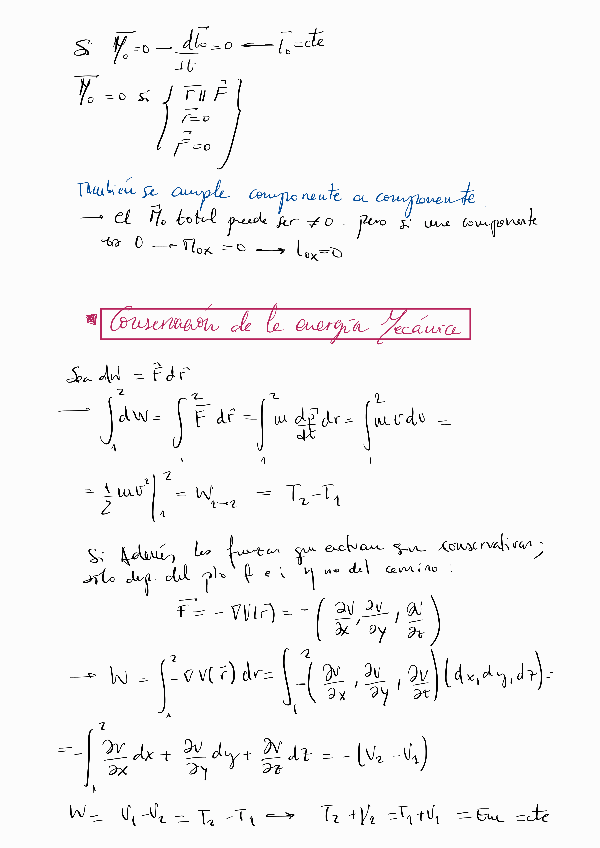 Si M⃗₀=0 → dL⃗₀/dt = 0 ← L⃗₀=cte
M⃗₀ = 0 si { r⃗ ∥ F⃗
r⃗=0
F⃗=0 }
También se cumple componente a componente.
→ el M⃗₀ total puede ser ≠0. pero si una componente
es 0 → M₀ₓ =0 → L₀ₓ=0
* Conservación de la energía Mecánica
Sea dW = F⃗ dr⃗
→ ∫₁² dW = ∫₁² F⃗ dr⃗ = ∫₁² m dv⃗/dt dr = ∫₁² m v dv =
= 1/2 mv² |₁² = W₁→₂ = T₂-T₁
Si Además, las fuerzas que actúan son conservativas;
sólo dep. del pto f e i y no del camino.
F⃗ = - ∇V(r⃗) = - (∂V/∂x, ∂V/∂y, ∂V/∂z)
→ W = ∫₁² -∇V(r⃗) dr = ∫₁² -(∂V/∂x, ∂V/∂y, ∂V/∂z)(dx, dy, dz) =
= -∫₁² ∂V/∂x dx + ∂V/∂y dy + ∂V/∂z dz = -(V₂ - V₁)
W = V₁-V₂ = T₂-T₁ ↔ T₂+V₂ = T₁+V₁ = Em = cte